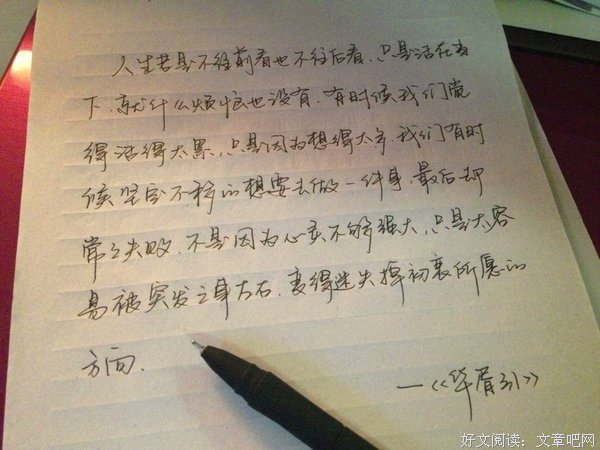 人生若是不往前看也不往后看,只是活在当
下,就什么烦恼也没有,有时候我们觉
得活得太累,只是因为想得太多,我们有时
候坚定不移的想要去做一件事,最后却
常常失败,不是因为心意不够强大,只是太容
易被突发之事左右,变得迷失掉初衷所愿的
方向.
—《华胥引》
好文阅读:文章吧网